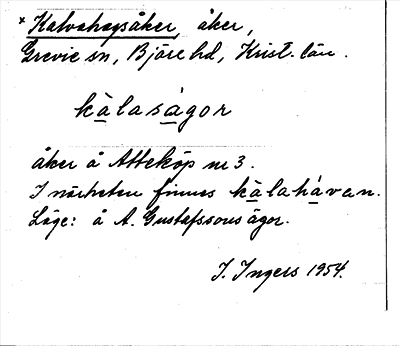 * Kalvahagsåker, åker,
Grevie sn, Bjäre hd, Krist. län.
kàlaságor
åker å Atteköp nr 3.
I närheten finnes kàlahávan.
Läge: å A. Gustafssons ägor.
I. Ingers 1954.